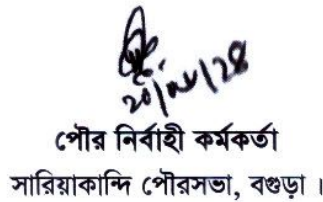 পৌর নির্বাহী কর্মকর্তা
সারিয়াকান্দি পৌরসভা, বগুড়া ।